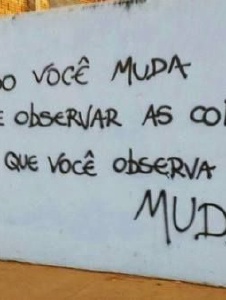 VOCÊ MUDA
OBSERVAR AS
QUE VOCÊ OBSERVA